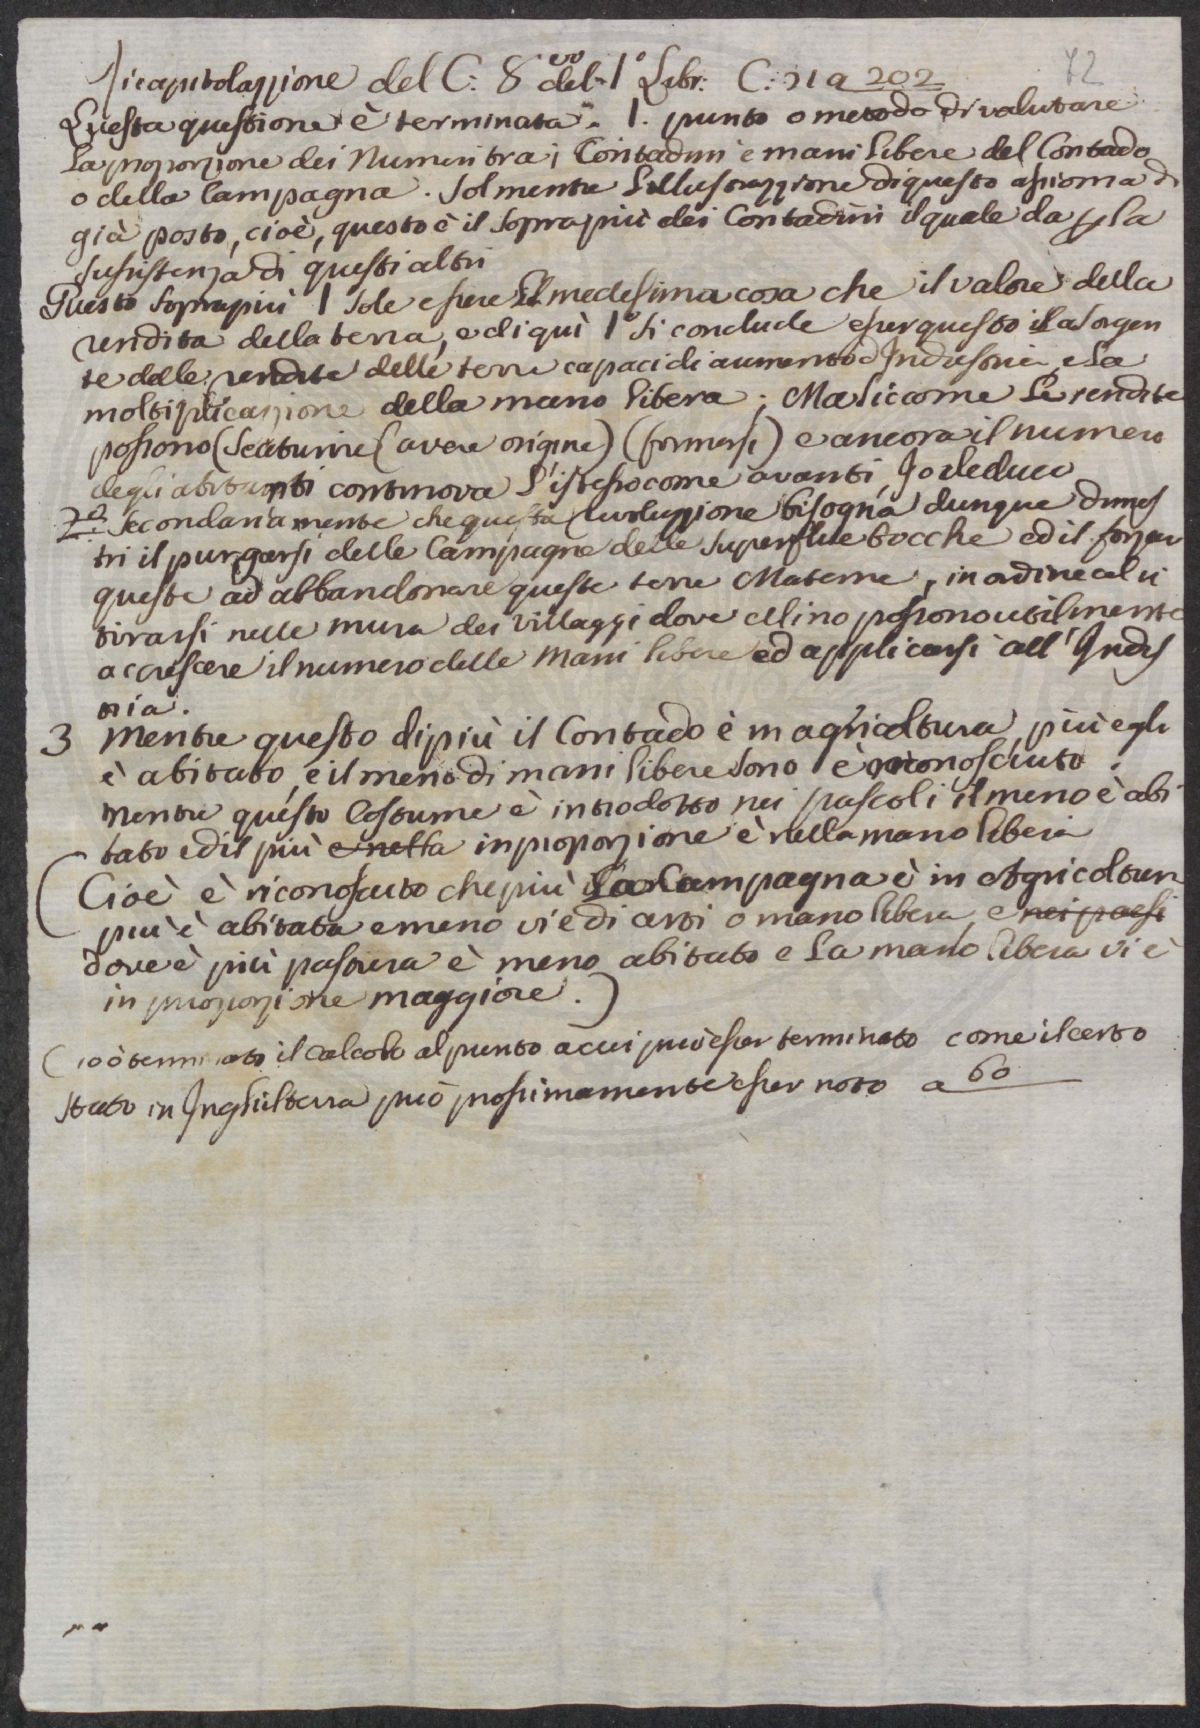 Ricapitolazzione del C: 8.vo del 1° Libr: C: 71 a 202
72
Questa questione è terminata. 1. punto o metodo di valutare
la proporzione dei Numeri tra i Contadini e mani libere del Contado
o della Campagna. Solmente l'illustrazzione di questo assioma di
già posto, cioè, questo è il soprapiù dei Contadini il quale da p la
sussistenza di questi altri
Questo soprapiù 1 sole essere il medesima cosa che il valore della
rendita della terra, e di quì 1° si conclude esser questo il a sorgen
te delle rendite delle terre capaci di aumento d Industria e la
moltiplicazione della mano libera; Ma siccome le rendite
possono (scaturire (avere origine) (formarsi) e ancora il numero
degli abitanti continova l'istesso come avanti, Io deduco
2.° Secondariamente che questa rivoluzzione bisogna dunque dimos
tri il purgarsi delle Campagne delle superflue bocche ed il forzar
queste ad abbandonare queste terre Materne, in ordine al ri
tirarsi nelle mura dei Villaggi dove ellino possono utilmente
accrescere il numero delle Mani libere ed applicarsi all'Indus
tria.
3 Mentre questo di più il Contado è in agricoltura, più egli
è abitato, e il meno di mani libere sono è riconosciuto.
Mentre questo Costume è introdotto nei pascoli il meno è abi
tato ed il più e netta in proporzione è nella mano libera
(Cioè è riconosciuto che più la Campagna è in Agricoltura
più è abitata e meno vi è di arti o mano libera, e nei paesi
dove è più pastura è meno abitato e la mano libera vi è
in proporzione maggiore.)
(io ò terminato il calcolo al punto a cui può esser terminato come il certo
stato in Inghilterra può prossimamente esser noto a 60